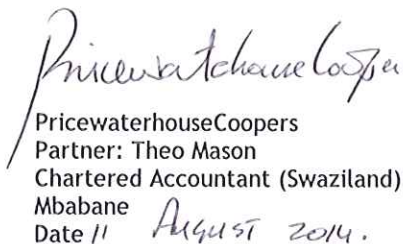 PricewaterhouseCoopers
PricewaterhouseCoopers
Partner: Theo Mason
Chartered Accountant (Swaziland)
Mbabane
Date 11 August 2014.